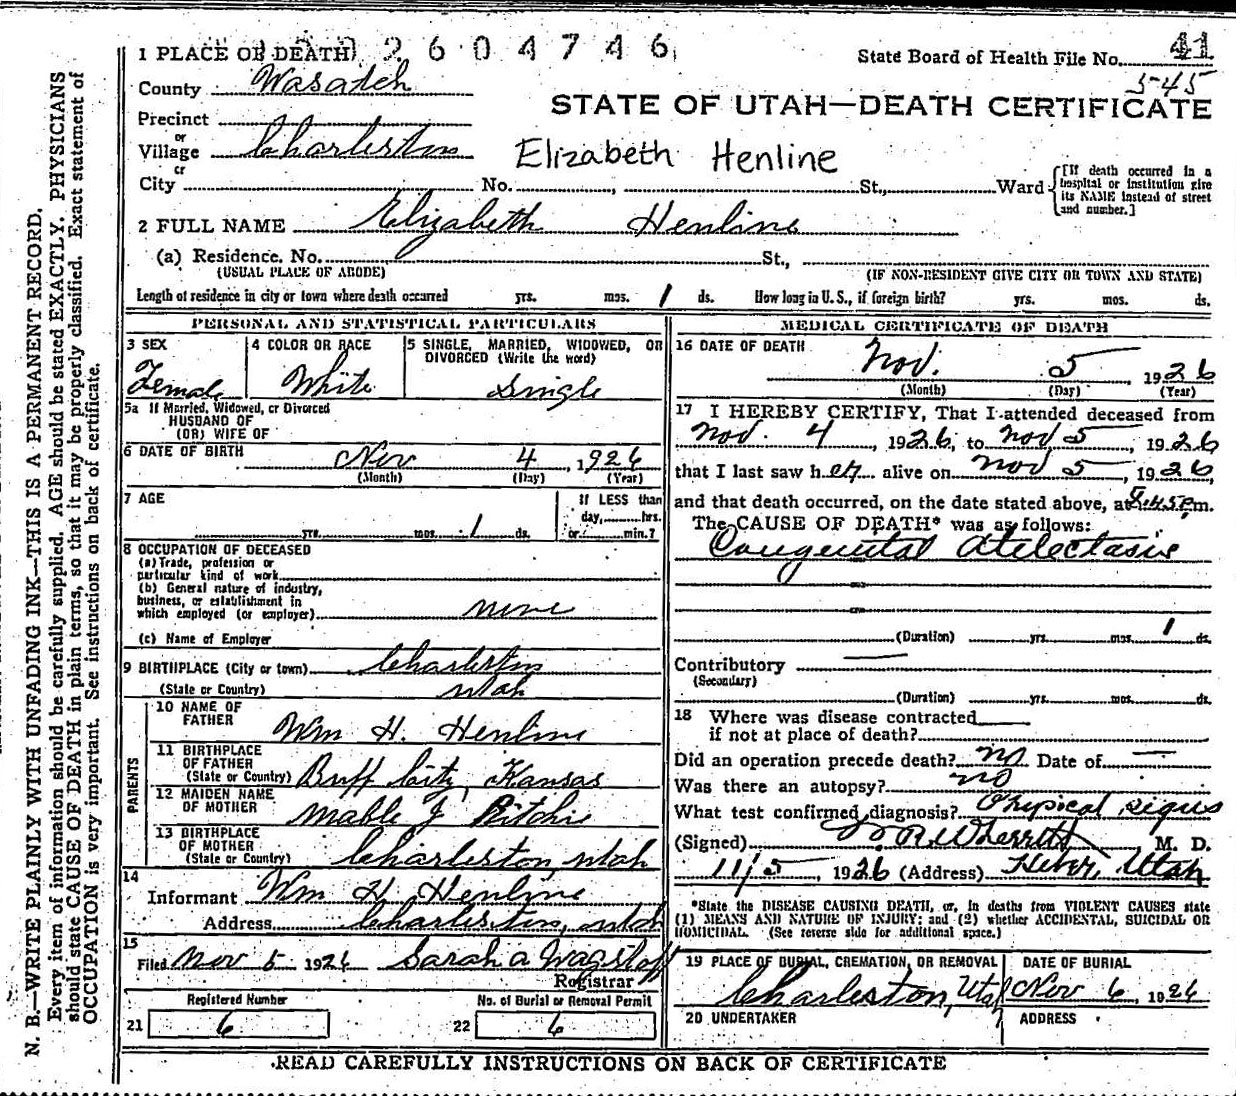 1 PLACE OF DEATH 2604746
State Board of Health File No. 41
545
County Wasatch
STATE OF UTAH—DEATH CERTIFICATE
Precinct
or
Village Charleston
Elizabeth Henline
or
City No. , St., Ward
[If death occurred in a
hospital or institution give
its NAME instead of street
and number.]
2 FULL NAME Elizabeth Henline
(a) Residence. No. St.,
(USUAL PLACE OF ABODE) (IF NON-RESIDENT GIVE CITY OR TOWN AND STATE)
Length of residence in city or town where death occurred yrs. mos. 1 ds. How long in U.S., if foreign birth? yrs. mos. ds.
PERSONAL AND STATISTICAL PARTICULARS
3 SEX
Female
4 COLOR OR RACE
White
5 SINGLE, MARRIED, WIDOWED, OR
DIVORCED (Write the word)
Single
5a If Married, Widowed, or Divorced
HUSBAND OF
(OR) WIFE OF
6 DATE OF BIRTH Nov 4, 1926
(Month) (Day) (Year)
7 AGE
yrs. mos. 1 ds.
If LESS than
day, hrs.
or min.?
8 OCCUPATION OF DECEASED
(a) Trade, profession or
particular kind of work
(b) General nature of industry,
business, or establishment in
which employed (or employer) none
(c) Name of Employer
9 BIRTHPLACE (City or town) Charleston
(State or Country) Utah
PARENTS
10 NAME OF
FATHER Wm H. Henline
11 BIRTHPLACE
OF FATHER
(State or Country) Buff City, Kansas
12 MAIDEN NAME
OF MOTHER Mable J Ritchie
13 BIRTHPLACE
OF MOTHER
(State or Country) Charleston, Utah
14
Informant Wm H. Henline
Address Charleston, Utah
15
Filed Nov 5 1926 Sarah A Wagstaff
Registrar
Registered Number
21 6
No. of Burial or Removal Permit
22 6
MEDICAL CERTIFICATE OF DEATH
16 DATE OF DEATH
Nov. 5, 1926
(Month) (Day) (Year)
17 I HEREBY CERTIFY, That I attended deceased from
Nov. 4, 1926, to Nov 5, 1926
that I last saw her alive on Nov 5, 1926,
and that death occurred, on the date stated above, at 8:45 p.m.
The CAUSE OF DEATH* was as follows:
Congenital Atelectasis
(Duration) yrs. mos. 1 ds.
Contributory —
(Secondary)
(Duration) yrs. mos. ds.
18 Where was disease contracted
if not at place of death?
Did an operation precede death? no Date of —
Was there an autopsy? no
What test confirmed diagnosis? Physical signs
(Signed) R. Wherritt M. D.
11/5, 1926 (Address) Heber, Utah
*State the DISEASE CAUSING DEATH, or, in deaths from VIOLENT CAUSES state
(1) MEANS AND NATURE OF INJURY; and (2) whether ACCIDENTAL, SUICIDAL OR
HOMICIDAL. (See reverse side for additional space.)
19 PLACE OF BURIAL, CREMATION, OR REMOVAL
Charleston, Utah
DATE OF BURIAL
Nov 6, 1926
20 UNDERTAKER ADDRESS
READ CAREFULLY INSTRUCTIONS ON BACK OF CERTIFICATE
N. B.—WRITE PLAINLY WITH UNFADING INK—THIS IS A PERMANENT RECORD.
Every item of information should be carefully supplied. AGE should be stated EXACTLY. PHYSICIANS
should state CAUSE OF DEATH in plain terms, so that it may be properly classified. Exact statement of
OCCUPATION is very important. See instructions on back of certificate.